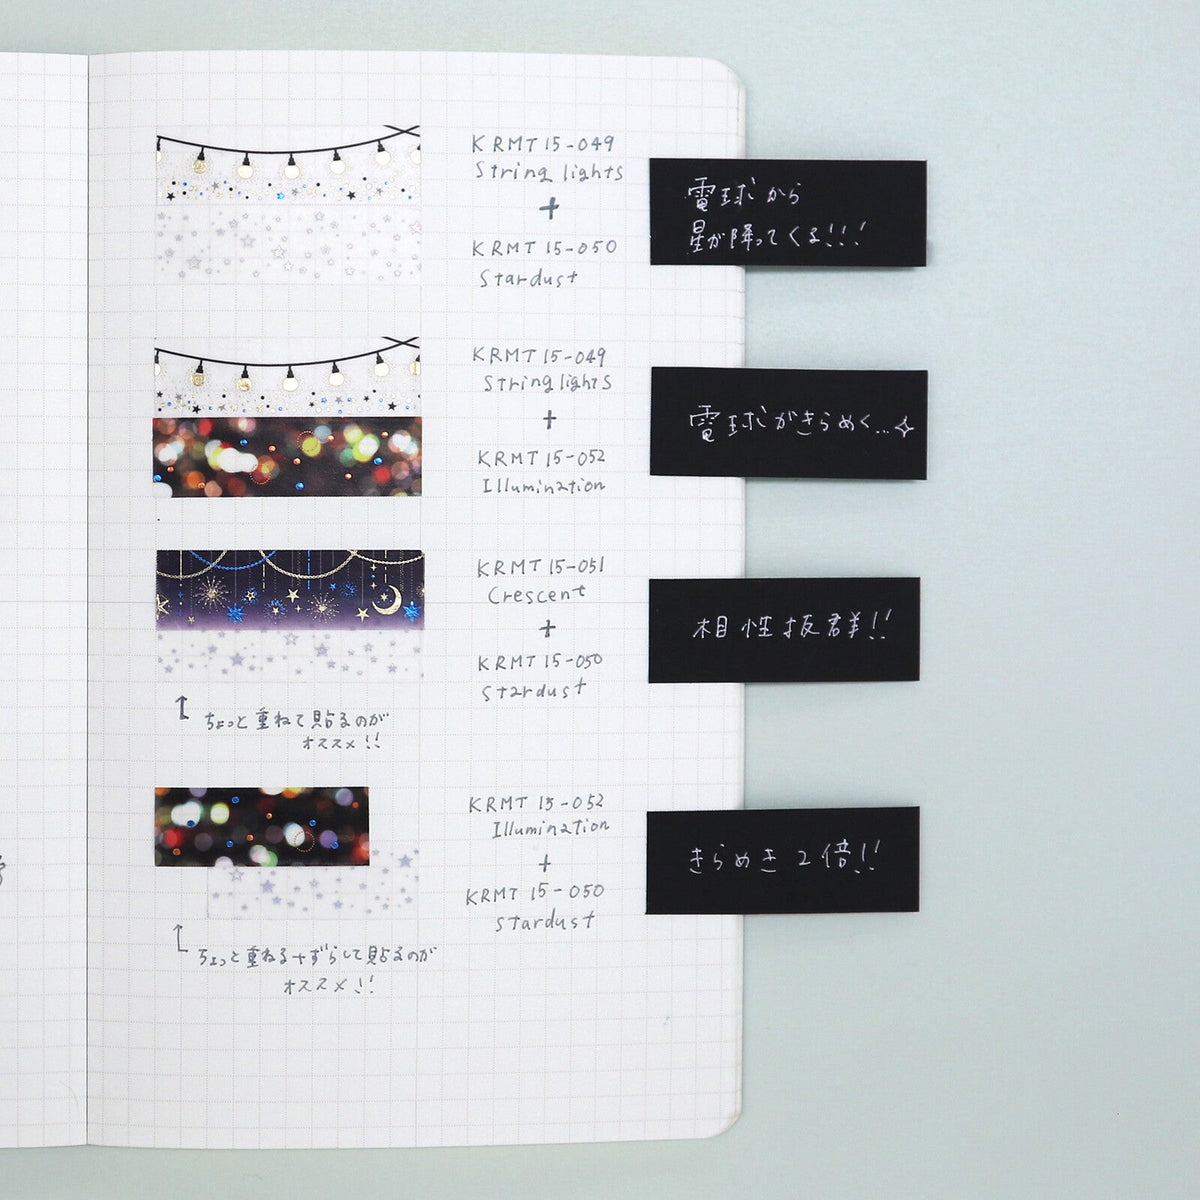 KRMT 15-049
String lights
+
KRMT 15-050
Stardust
電球から
星が降ってくる!!!
KRMT 15-049
String lights
+
KRMT 15-052
Illumination
電球がきらめく...✧
KRMT 15-051
Crescent
+
KRMT 15-050
Stardust
相性抜群!!
ちょっと重ねて貼るのが
オススメ!!
KRMT 15-052
Illumination
+
KRMT 15-050
Stardust
きらめき2倍!!
ちょっと重ねる+ずらして貼るのが
オススメ!!